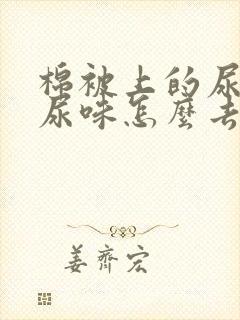 棉被上的尿
尿味怎麼去
姜齊宏